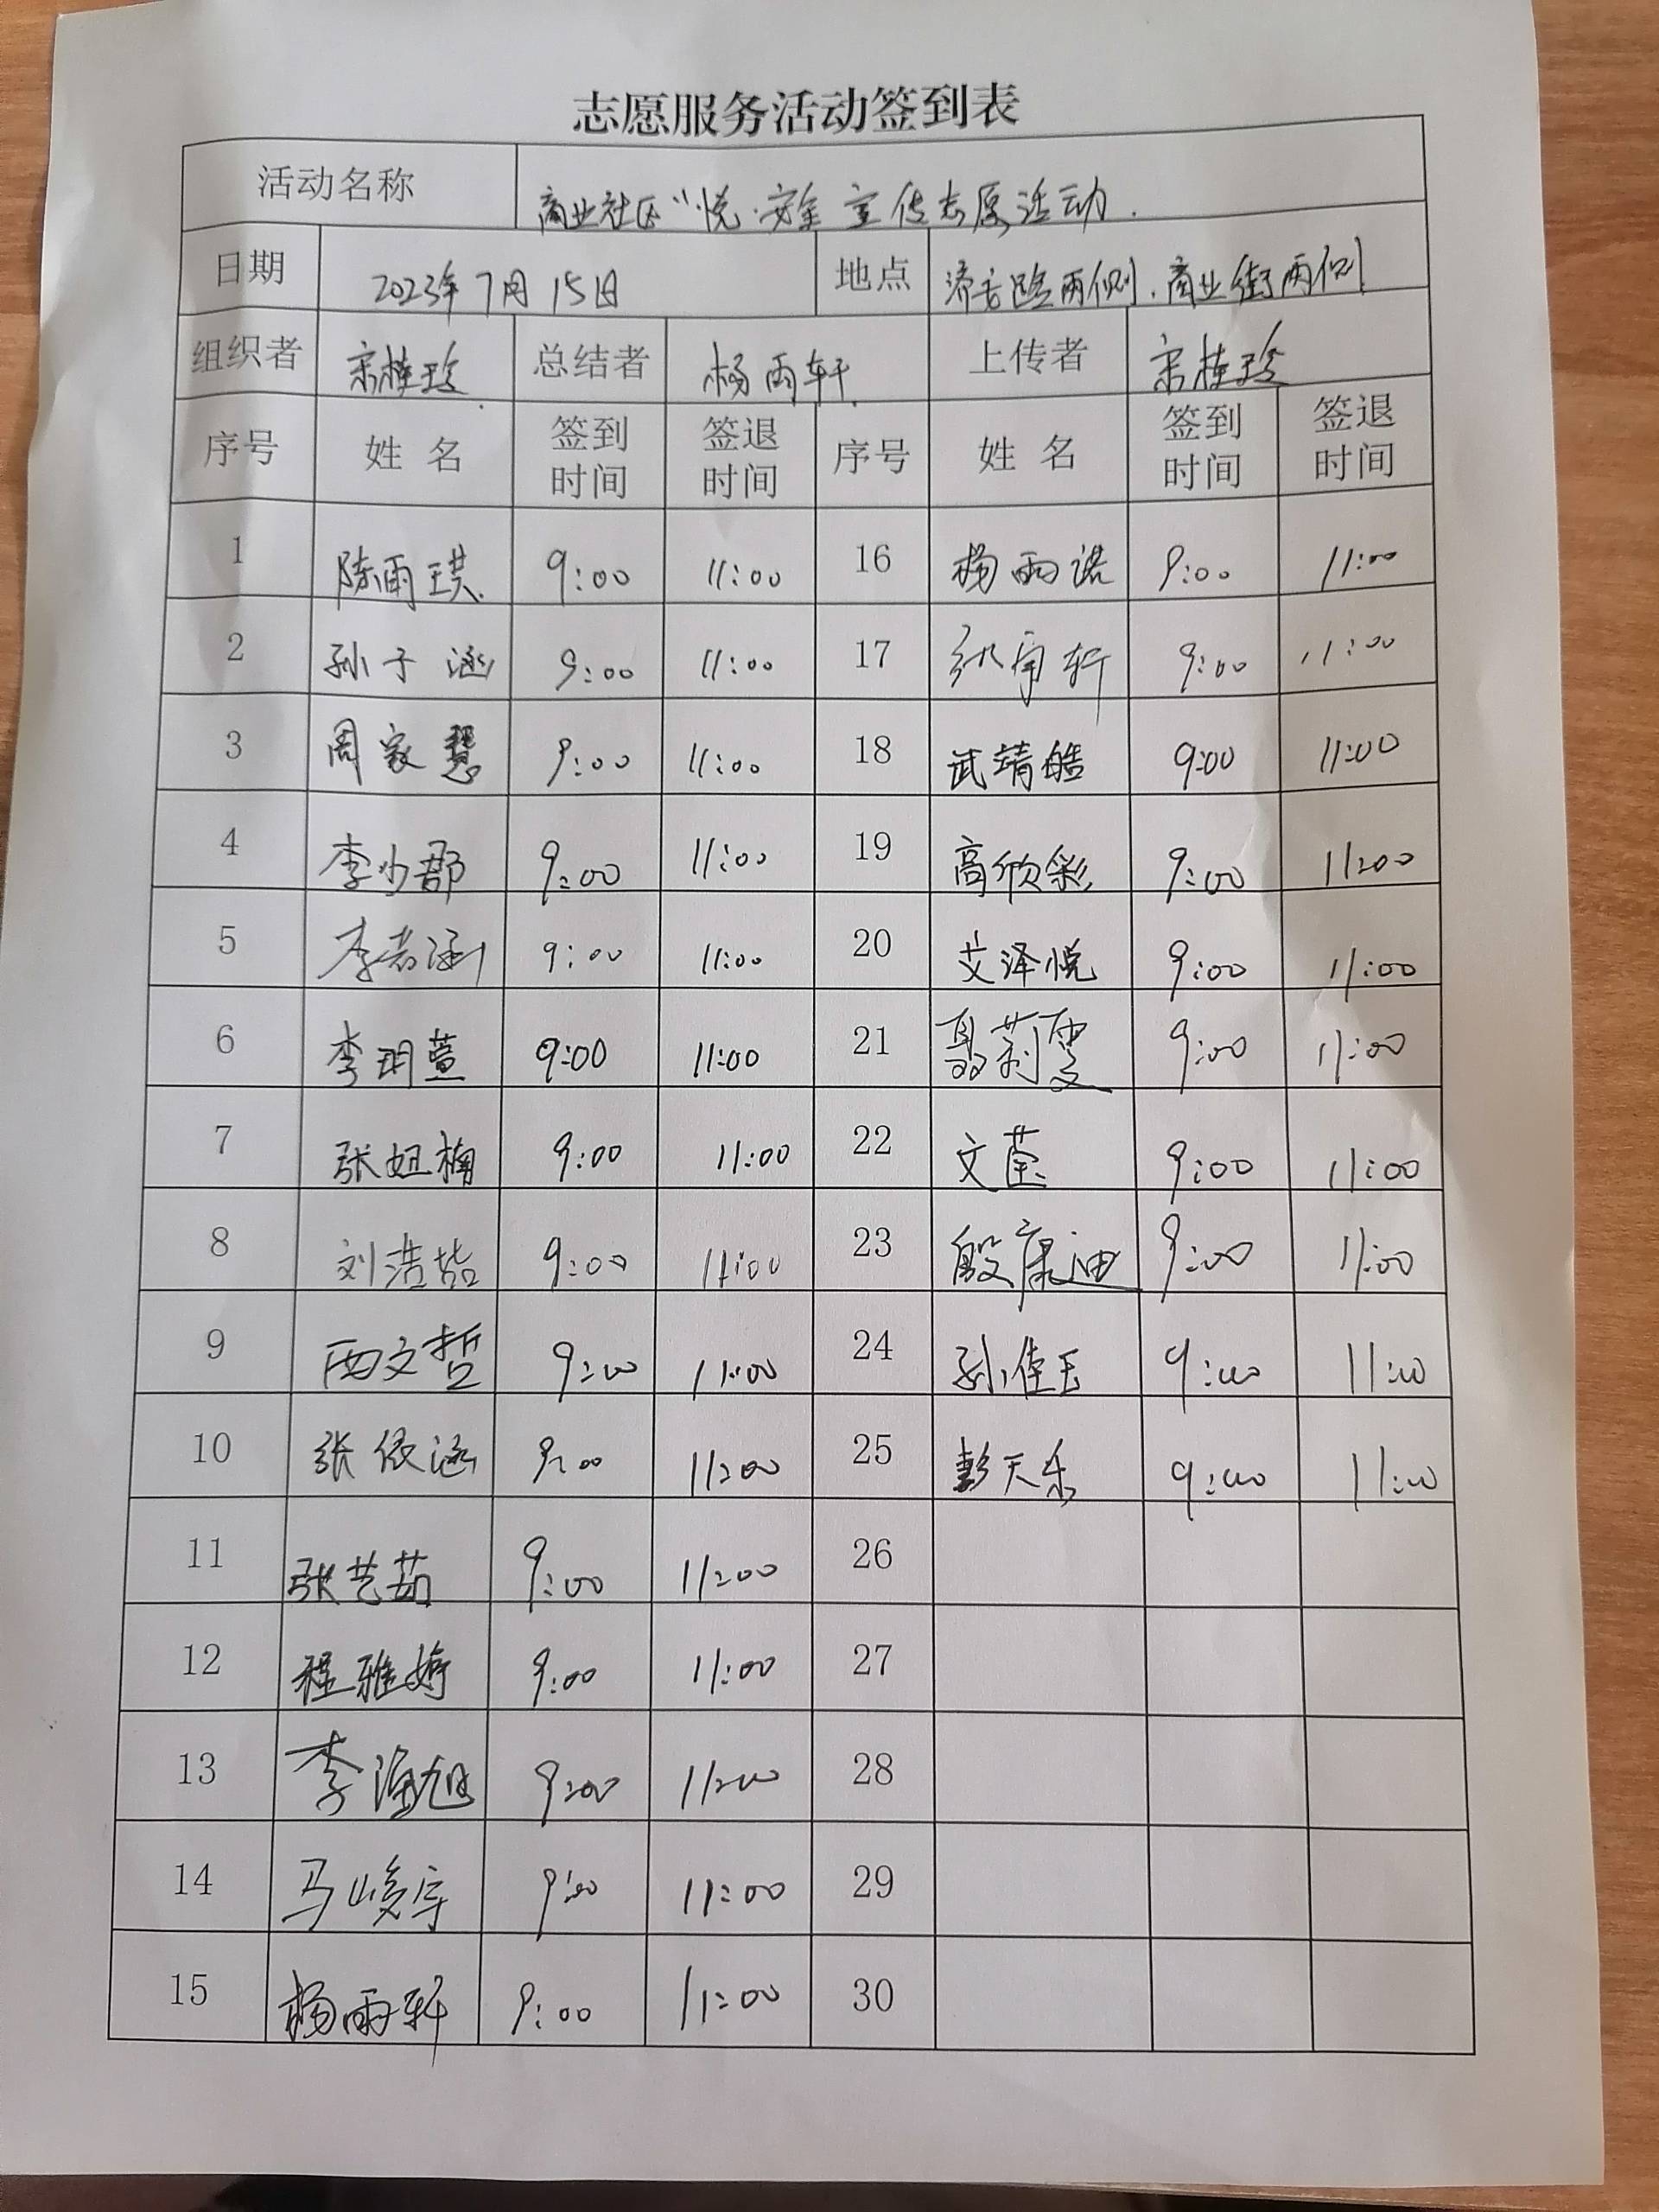 志愿服务活动签到表
活动名称 商业社区"悦·安全宣传志愿活动.
日期 2023年7月15日 地点 路两侧.商业街两侧
组织者 宋桂珍 总结者 杨雨轩 上传者 宋桂珍
序号 姓名 签到时间 签退时间 序号 姓名 签到时间 签退时间
1 陈雨琪 9:00 11:00 16 杨雨诺 9:00 11:00
2 孙子涵 9:00 11:00 17 9:00 11:00
3 周家慧 9:00 11:00 18 武靖皓 9:00 11:00
4 李少郡 9:00 11:00 19 高欣彩 9:00 11:00
5 李若涵 9:00 11:00 20 艾泽悦 9:00 11:00
6 李玥萱 9:00 11:00 21 聂莉雯 9:00 11:00
7 张妞楠 9:00 11:00 22 文莹 9:00 11:00
8 刘浩喆 9:00 11:00 23 殷康迪 9:00 11:00
9 西文哲 9:00 11:00 24 孙佳玉 9:00 11:00
10 张依涵 9:00 11:00 25 彭天乐 9:00 11:00
11 张艺茹 9:00 11:00 26
12 程雅婷 9:00 11:00 27
13 李海旭 9:00 11:00 28
14 马峻宇 9:00 11:00 29
15 杨雨轩 9:00 11:00 30